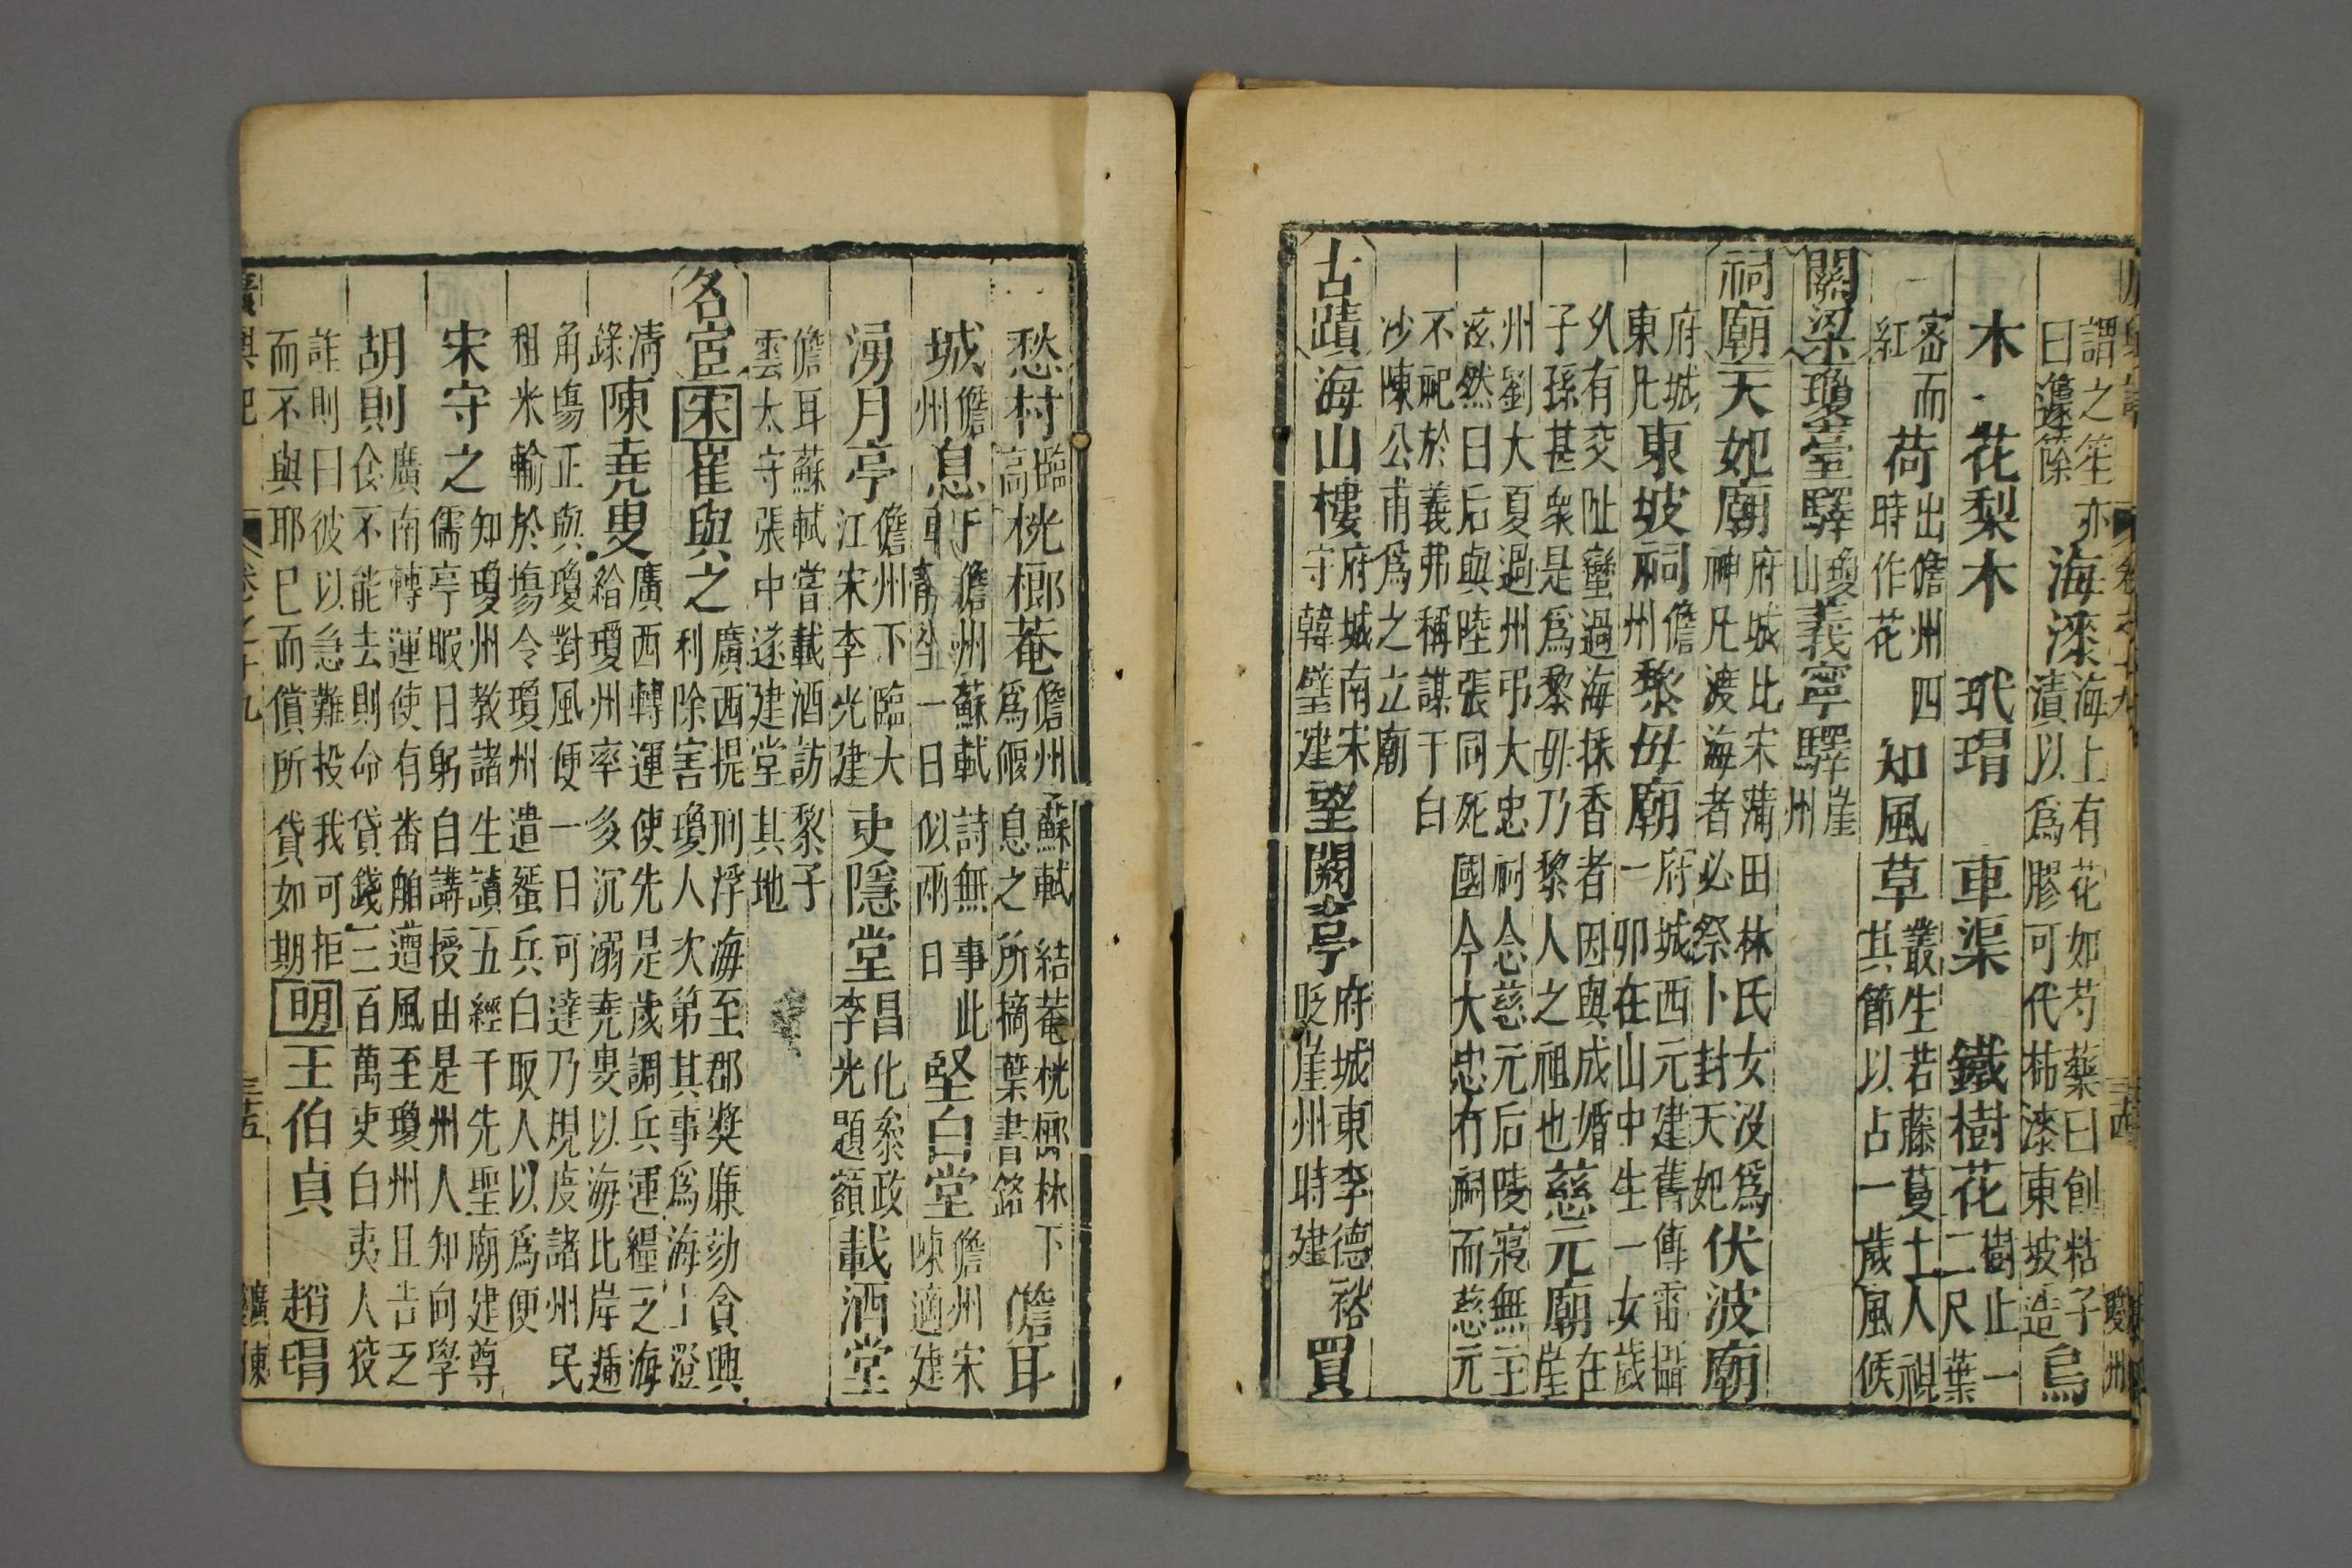 謂之笙亦曰籧篨 海漆海上有花如芍藥曰創粘子漬以為膠可代柿漆東坡造 烏
木 花梨木 玳瑁 車渠 鐵樹花樹止一二尺葉
密而紅 荷出儋州四時作花 知風草叢生若藤蔓土人視其節以占一歲風候
關梁 瓊臺驛瓊山 義寧驛崖州
祠廟 天妃廟府城北宋蒲田林氏女沒為神凡渡海者必祭卜封天妃 伏波廟
府城東凡 東坡祠儋州 黎母廟府城西元建舊傳雷攝一卵在山中生一女歲
久有交趾蠻過海採香者因與成婚子孫甚衆是為黎母乃黎人之祖也 慈元廟在崖
州劉大夏過州弔大忠祠念慈元后陵寢無主泫然曰后與陸張同死國今大忠有祠而慈元
不祀於義弗稱謀于白沙陳公甫為之立廟
古蹟 海山樓府城南宋守韓璧建 望闕亭府城東李德裕貶崖州時建 買
愁村臨高 桄榔菴儋州蘇軾結菴桄榔林下為偃息之所摘葉書銘 儋耳
城儋州 息軒儋州蘇軾詩無事此靜坐一日似兩日 堅白堂儋州宋陳適建
湧月亭儋州下臨大江宋李光建 吏隱堂昌化叅政李光題額 載酒堂
儋耳蘇軾嘗載酒訪黎子雲太守張中遂建堂其地
名宦 宋 崔與之廣西提刑浮海至郡獎廉劾貪興利除害瓊人次第其事為海上澄
清錄 陳堯叟廣西轉運使先是歲調兵運糧之海給瓊州率多沉溺堯叟以海北岸遞
角塲正與瓊對風便一日可達乃規度諸州民租米輸於塲令瓊州遣蜑兵自取人以為便
宋守之知瓊州教諸生讀五經于先聖廟建尊儒亭暇日躬自講授由是州人知向學
胡則廣南轉運使有番舶遭風至瓊州且告乏食不能去則命貸錢三百萬吏白夷人狡
詐則曰彼以急難投我可拒而不與耶已而償所貸如期 明 王伯貞 趙瑁
廣輿記 卷之十九 三五 廣東